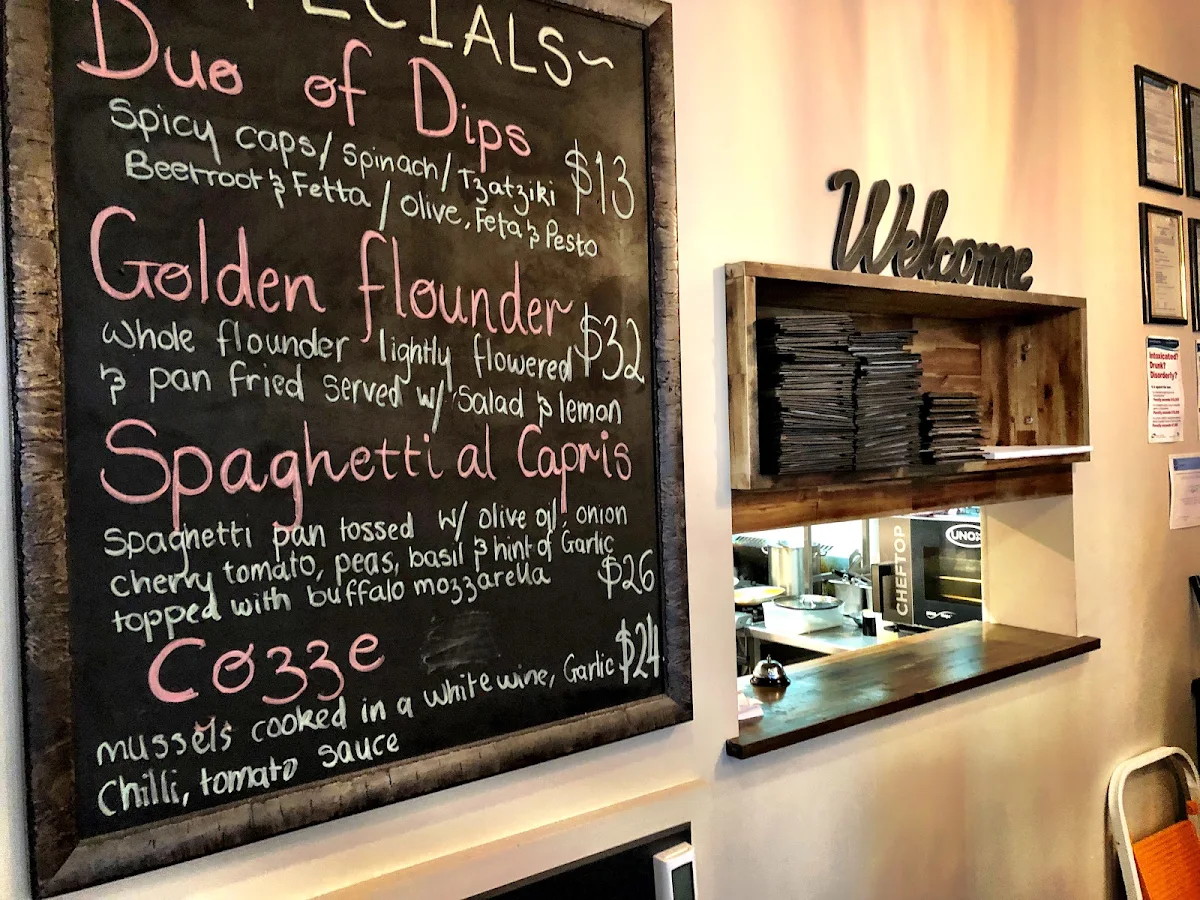 PECIALS~
Duo of Dips
Spicy caps/ spinach/ Tzatziki $13
Beetroot & Fetta / olive, Feta & Pesto
Golden flounder
whole flounder lightly flowered $32
& pan fried served w/ salad & lemon
Spaghetti al Capris
spaghetti pan tossed w/ olive oil, onion
cherry tomato, peas, basil & hint of Garlic
topped with buffalo mozzarella $26
Cozze
mussels cooked in a white wine, Garlic $24
Chilli, tomato sauce
Welcome
CHEFTOP
UNOX
Intoxicated?
Drunk?
Disorderly?